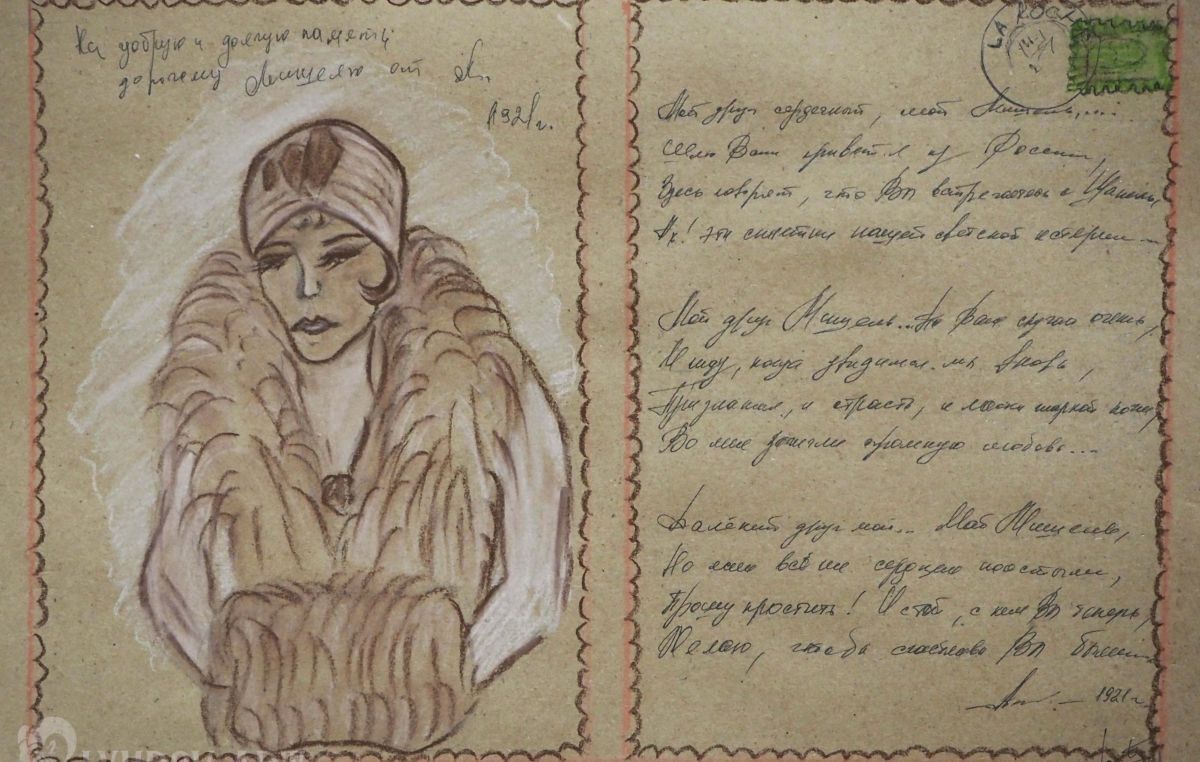 На добрую и долгую память
дорогому Мишелю от
1921г.
LA ROCH
Мой друг сердечный, мой Мишель,...
Шлю Вам привет я из России,
Здесь говорят, что Вы встречаетесь с Шанель,
Ах! Эти сплетни нашей светской истерии...
Мой друг Мишель... По Вам скучаю очень,
И жду, когда увидимся мы вновь,
Признания, и страсть, и ласки жаркой ночи,
Во мне зажгли огромную любовь...
Далёкий друг мой... Мой Мишель,
Ко мне Вы сердцем поостыли,
Прошу простить! И с той, с кем Вы теперь,
Желаю, чтобы счастливо Вы были...
1921г.